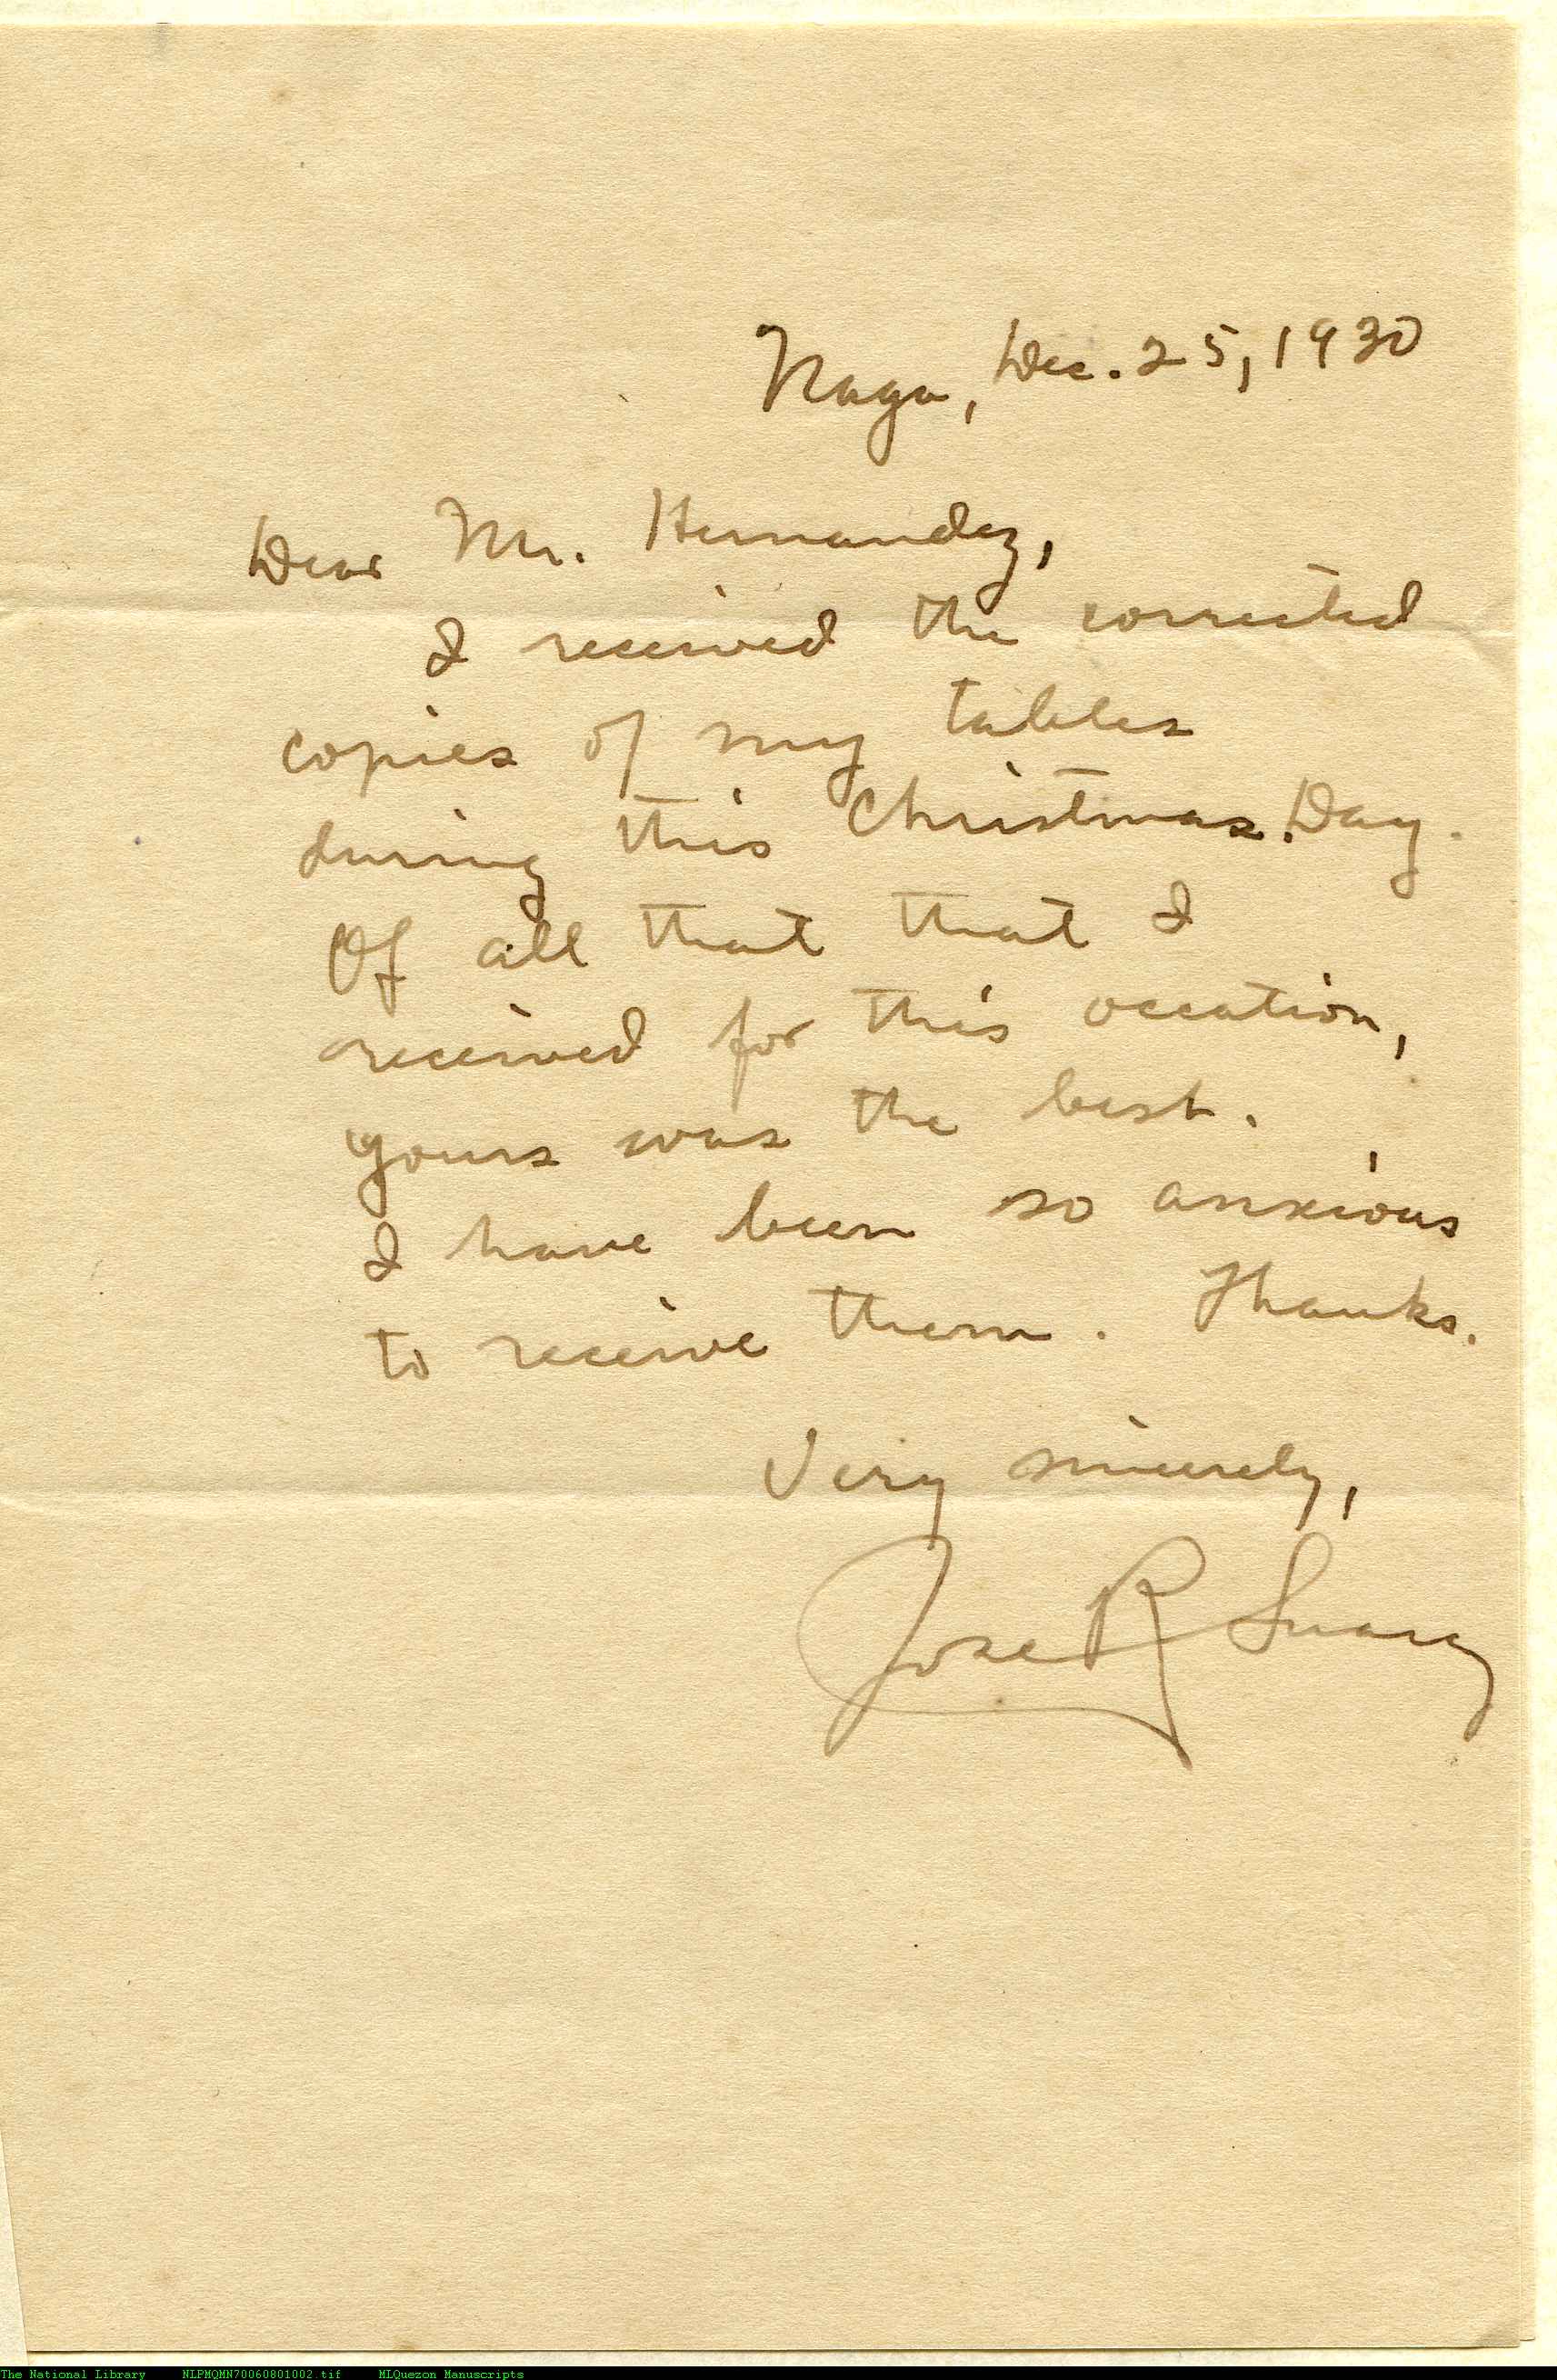 Naga, Dec. 25, 1930
Dear Mr. Hernandez,
I received the corrected
copies of my tables
during this Christmas Day.
Of all that that I
received for this occation,
yours was the best.
I have been so anxious
to receive them. Thanks.
Very sincerely,
Jose R Suarez
The National Library NLPMQMN70060801002.tif MLQuezon Manuscripts